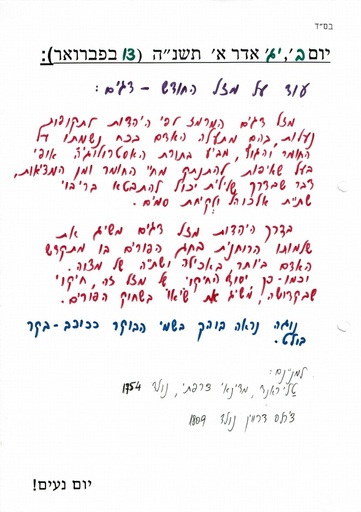 בס״ד
יום ב׳, י״ג׳ אדר א׳ תשנ״ה (13 בפברואר):
עוד על מזל החודש – דגים:
מזל דגים המרמז לפי היהדות לתקופות
נעלות, בהם מתעלה האדם בכח נשמתו על
החומר והגוף, מביע בתורת האסטרולוגיה אופי
בעל שאיפות להתנתק מחיי החומר ומן המציאות,
דבר שבדרך שלילית יכול להתבטא בריבוי
שתית אלכוהל ולקיחת סמים.
בדרך היהדות מזל דגים משיג את
שלמותו הרוחנית בחג הפורים בו מתקדש
האדם ביותר באכילה ושתיה של מצוה.
וכמו-כן יסוד החיקוי של מזל זה, חיקוי
שבקדושה, משיג את שיאו בשחוק הפורים.
נוגה נראה בוהק בשמי הבוקר ככוכב-בקר
בולט.
למניינם:
טליראנד, מדינאי צרפתי, נולד 1754
צ׳רלס דרווין נולד 1809
יום נעים!